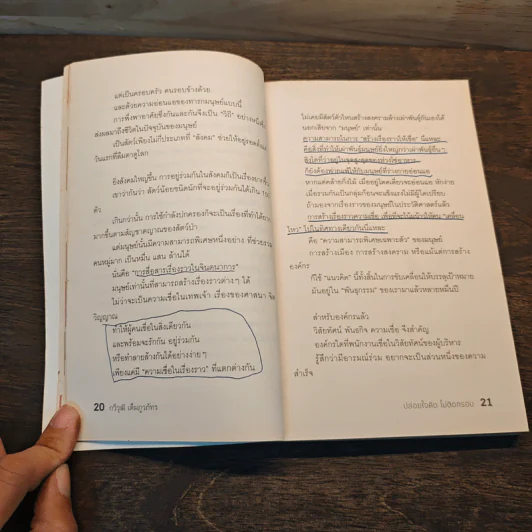 แต่เป็นครอบครัว คนรอบข้างด้วย
และด้วยความอ่อนแอของทารกมนุษย์แบบนี้
การพึ่งพาอาศัยซึ่งกันและกันจึงเป็น "วิถี" อย่างหนึ่งที่
ส่งผลมาถึงชีวิตในปัจจุบันของมนุษย์
เป็นสัตว์เพียงไม่กี่ประเภทที่ "สังคม" ช่วยให้อยู่รอดตั้งแต่
วันแรกที่ลืมตาดูโลก
ยิ่งสังคมใหญ่ขึ้น การอยู่ร่วมกันในสังคมก็เป็นเรื่องยากขึ้น
เขาว่ากันว่า สัตว์น้อยชนิดนักที่จะอยู่ร่วมกันได้เกิน
ตัว
เกินกว่านั้น การใช้กำลังปกครองก็จะเป็นเรื่องที่ทำได้ยาก
มากขึ้นตามสัญชาตญาณของสัตว์ป่า
แต่มนุษย์นั้นมีความสามารถพิเศษหนึ่งอย่าง ที่ช่วย
คนหมู่มาก เป็นหมื่น แสน ล้านได้
นั่นคือ "การสื่อสารเรื่องราวในจินตนาการ"
มนุษย์เท่านั้นที่สามารถสร้างเรื่องราวต่าง ๆ ได้
ไม่ว่าจะเป็นความเชื่อในเทพเจ้า เรื่องของศาสนา จิต
วิญญาณ
ทำให้ผู้คนเชื่อในสิ่งเดียวกัน
และพร้อมจะรักกัน อยู่ร่วมกัน
หรือทำลายล้างกันได้อย่างง่าย ๆ
เพียงแค่มี "ความเชื่อในเรื่องราว" ที่แตกต่างกัน
20 กวีวุฒิ เต็มภูวภัทร
ไม่เคยมีสัตว์ตัวไหนสร้างสงครามล้างเผ่าพันธุ์กันเองได้
นอกเสียจาก "มนุษย์" เท่านั้น
ความสามารถในการ "สร้างเรื่องราวให้เชื่อ" นี่แหละ
คือสิ่งที่ทำให้เผ่าพันธุ์มนุษย์ยิ่งใหญ่กว่าเผ่าพันธุ์อื่น ๆ
สิงโตที่ว่าอยู่ในจุดสูงสุดของห่วงโซ่อาหาร
ก็ยังต้องพ่ายแพ้ให้กับมนุษย์ที่ร่างกายอ่อนแอ
หากแต่คล้ายกิ่งไม้ เมื่ออยู่โดดเดี่ยวจะอ่อนแอ หักง่าย
เมื่อรวมกันเป็นกลุ่มก้อนจะแข็งแรงไม่มีผู้ใดเปรียบ
ถ้ามองจากเรื่องราวของมนุษย์ในประวัติศาสตร์แล้ว
การสร้างเรื่องราวความเชื่อ เพื่อที่จะโน้มน้าวให้คน "เคลื่อน
ไหว" ไปในทิศทางเดียวกันนี่แหละ
คือ "ความสามารถพิเศษเฉพาะตัว" ของมนุษย์
การสร้างเมือง การสร้างสงคราม หรือแม้แต่การสร้าง
องค์กร
ก็ใช้ "แนวคิด" นี้ทั้งสิ้นในการขับเคลื่อนให้บรรลุเป้าหมาย
มันอยู่ใน "พันธุกรรม" ของเรามาแล้วหลายหมื่นปี
สำหรับองค์กรแล้ว
วิสัยทัศน์ พันธกิจ ความเชื่อ จึงสำคัญ
องค์กรใดที่พนักงานเชื่อในวิสัยทัศน์ของผู้บริหาร
รู้สึกว่ามีอารมณ์ร่วม อยากจะเป็นส่วนหนึ่งของความ
สำเร็จ
ปล่อยใจคิด ไม่ติดกรอบ 21